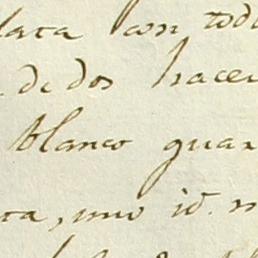 lata con todo
de dos hacer
blanco guar
ta, uno id. n